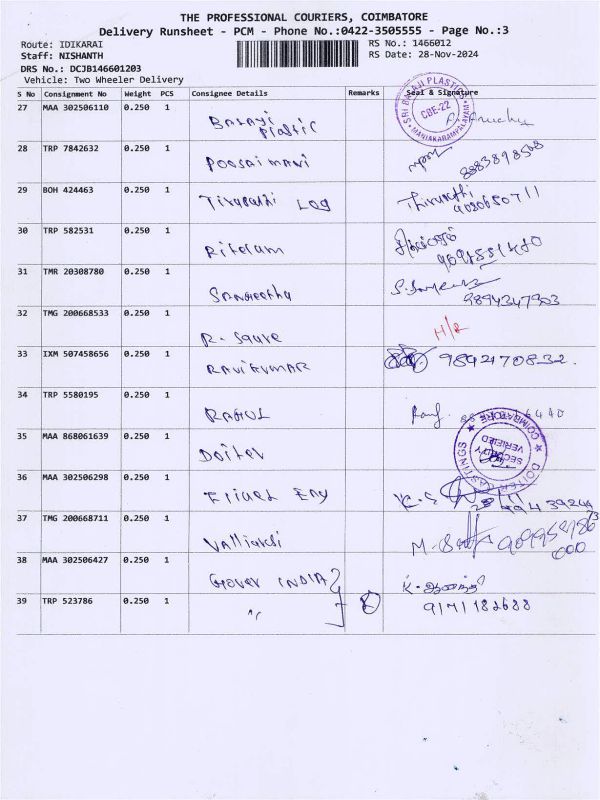 THE PROFESSIONAL COURIERS, COIMBATORE
Delivery Runsheet - PCM - Phone No.:0422-3505555 - Page No.:3
Route: IDIKARAI
RS No.: 1466012
Staff: NISHANTH
RS Date: 28-Nov-2024
DRS No.: DCJB146601203
Vehicle: Two Wheeler Delivery
S No Consignment No Weight PCS Consignee Details Remarks Seal & Signature
27 MAA 302506110 0.250 1 Balaji Plastic
SRI BALAJI PLASTIC CBE-22 MANIAKARAMPALAYAM
28 TRP 7842632 0.250 1 Poosaimani 8883898568
29 BOH 424463 0.250 1 Tirupathi Log Thirupathi
30 TRP 582531 0.250 1
31 TMR 20308780 0.250 1 Sangeetha 9894347903
32 TMG 200668533 0.250 1 R. Square H/R
33 IXM 507458656 0.250 1 Ravikumar 9842170832.
34 TRP 5580195 0.250 1 RAHUL
35 MAA 868061639 0.250 1 Doiter
DOITER CASTINGS COIMBATORE SECURITY VERIFIED
36 MAA 302506298 0.250 1 Eng
37 TMG 200668711 0.250 1
38 MAA 302506427 0.250 1 Gover INDIA
39 TRP 523786 0.250 1 〃 9171182688